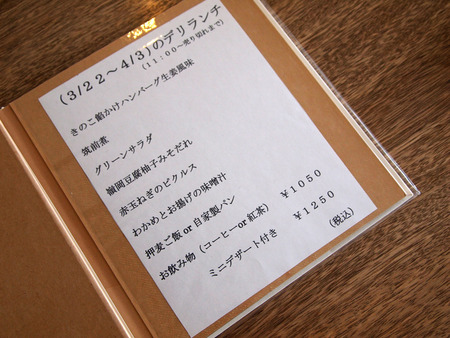 (3/22～4/3)のデリランチ
(11:00～売り切れまで)
きのこ餡かけハンバーグ生姜風味
筑前煮
グリーンサラダ
嶺岡豆腐柚子みそだれ
赤玉ねぎのピクルス
わかめとお揚げの味噌汁
押麦ご飯 or 自家製パン
お飲み物 (コーヒーor 紅茶) ￥1050
ミニデザート付き ￥1250
(税込)